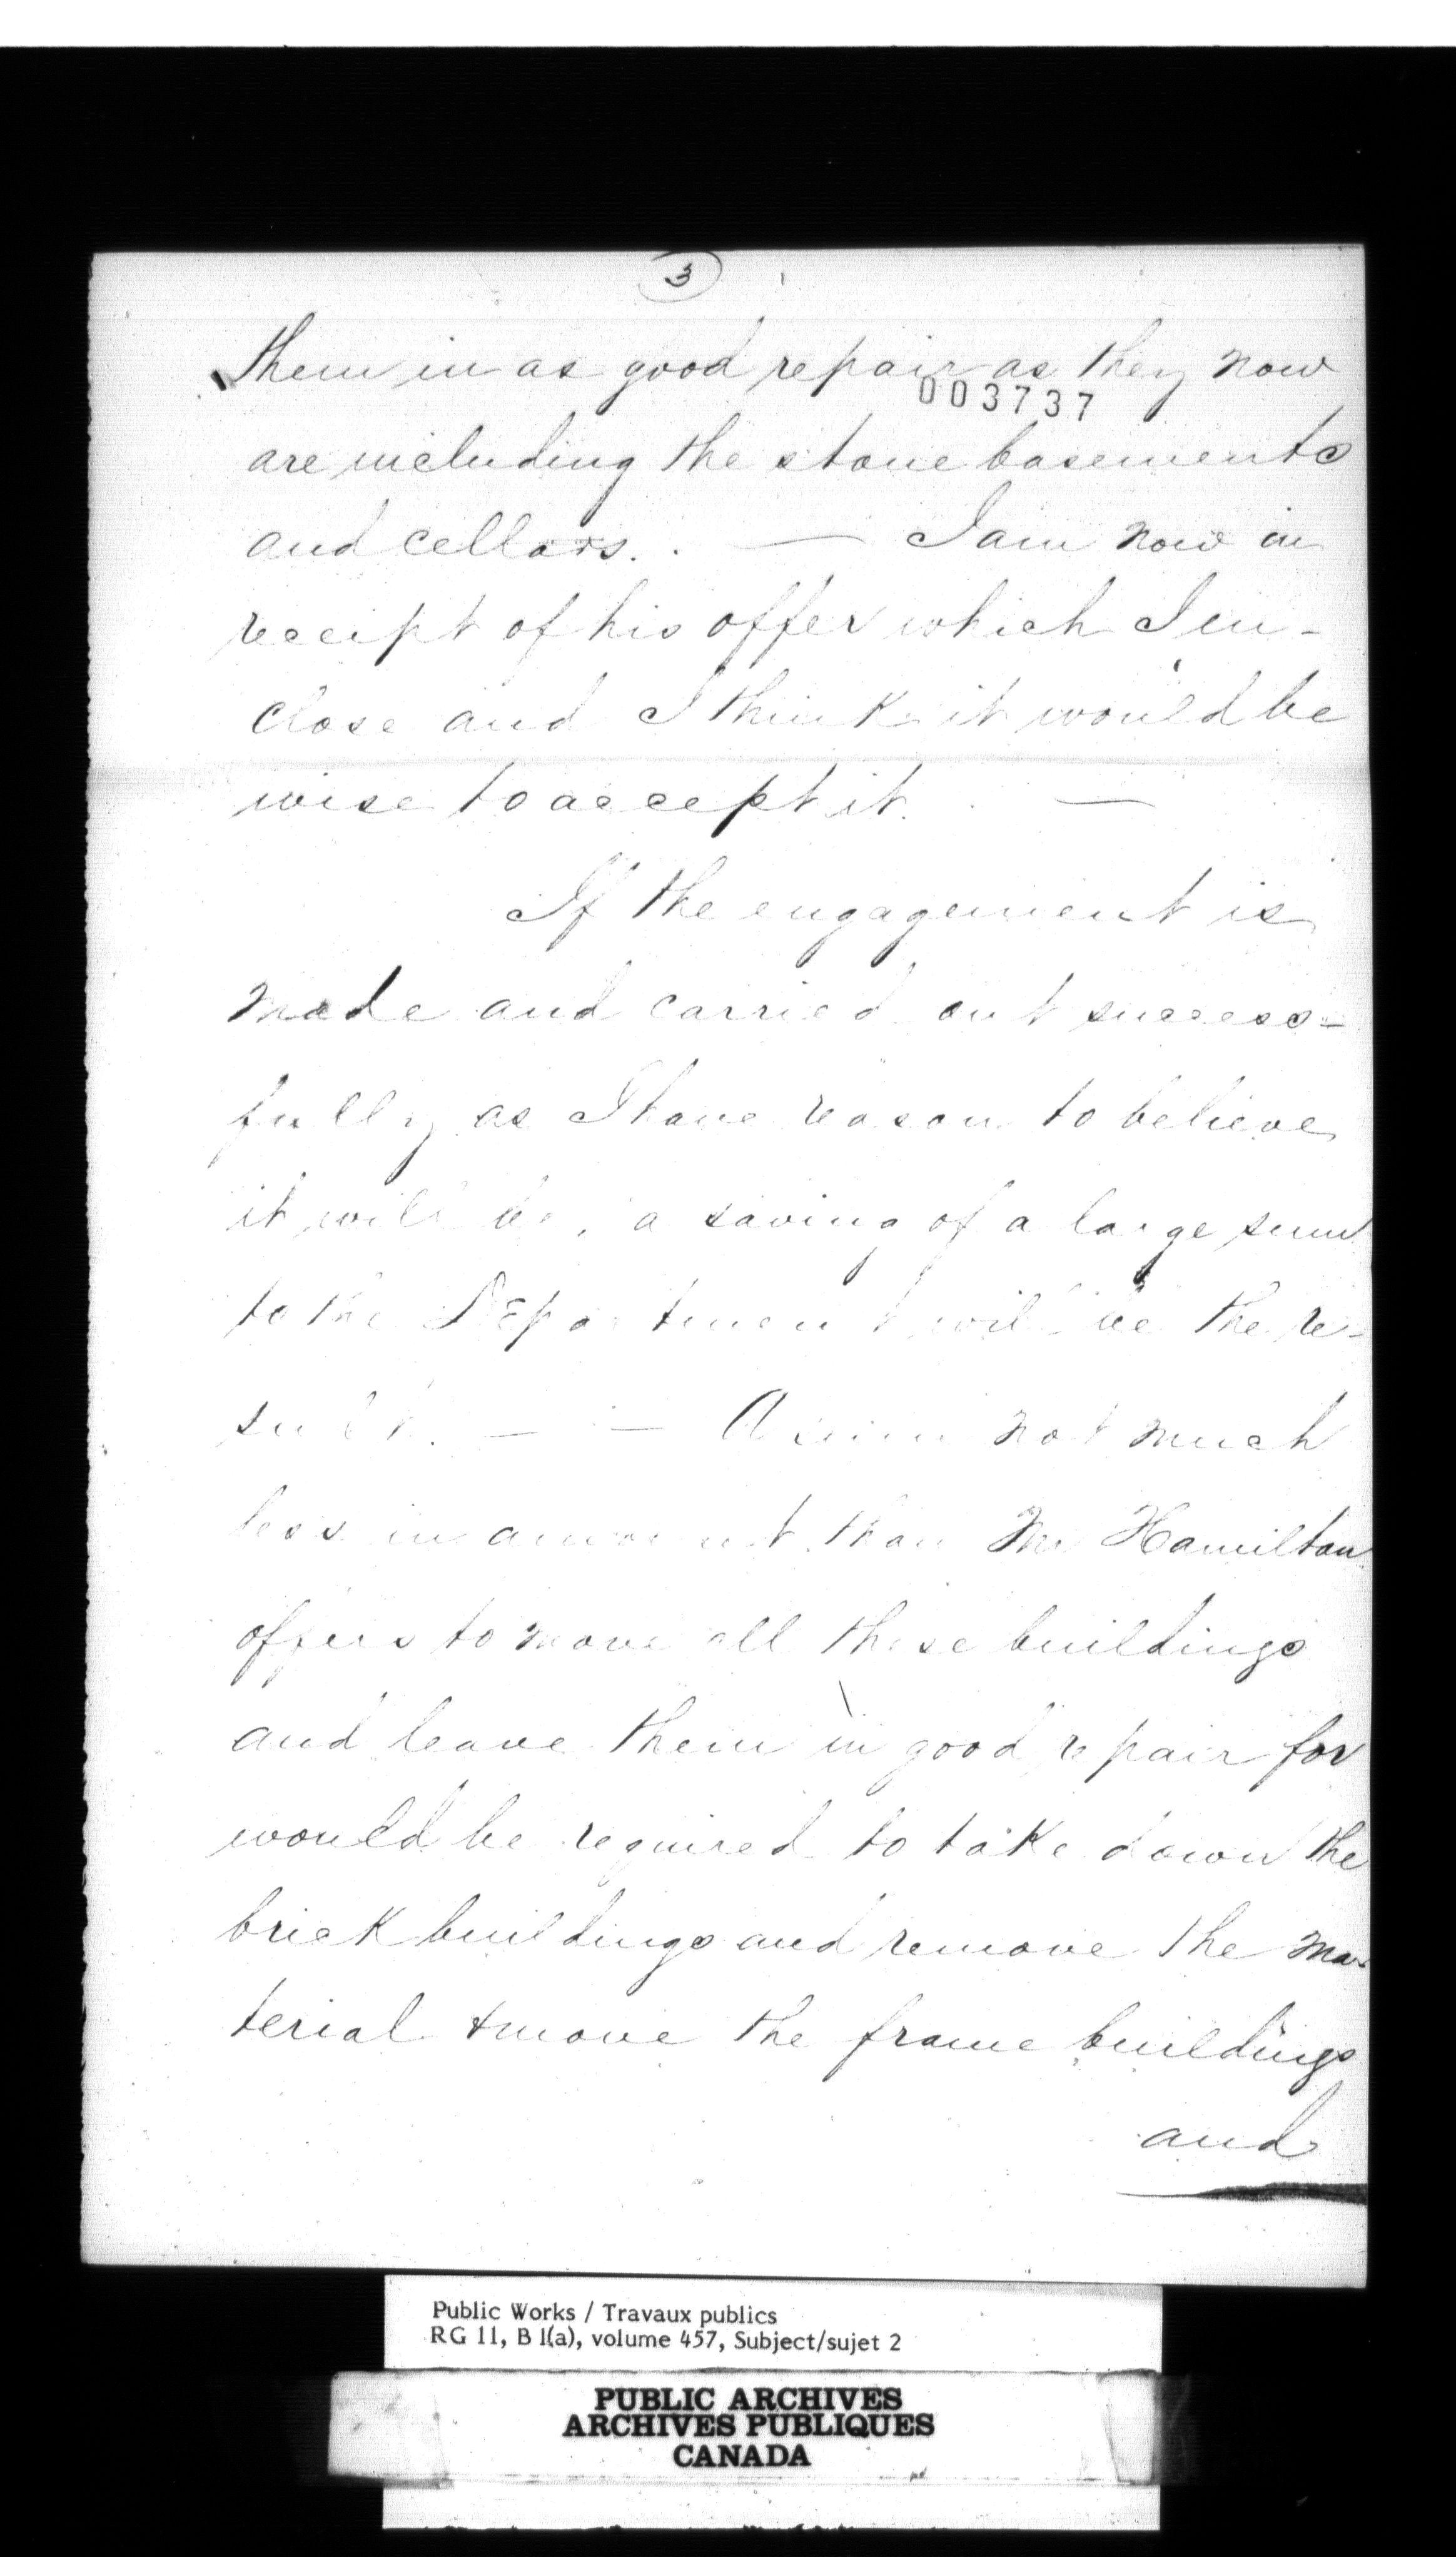 3
them in as good repair as they now
003737
are including the stone basements
and cellars. . — I am now in
receipt of his offer which I en-
close and I think it would be
wise to accept it. —
If the engagement is
made and carried out success-
fully as I have reason to believe
it will be, a saving of a large sum
to the Department will be the re-
sult. — — A sum not much
less in amount than Mr Hamilton
offers to move all these buildings
and leave them in good repair for
would be required to take down the
brick buildings and remove the ma-
terial & move the frame buildings
and
Public Works / Travaux publics
RG 11, B 1(a), volume 457, Subject/sujet 2
PUBLIC ARCHIVES
ARCHIVES PUBLIQUES
CANADA